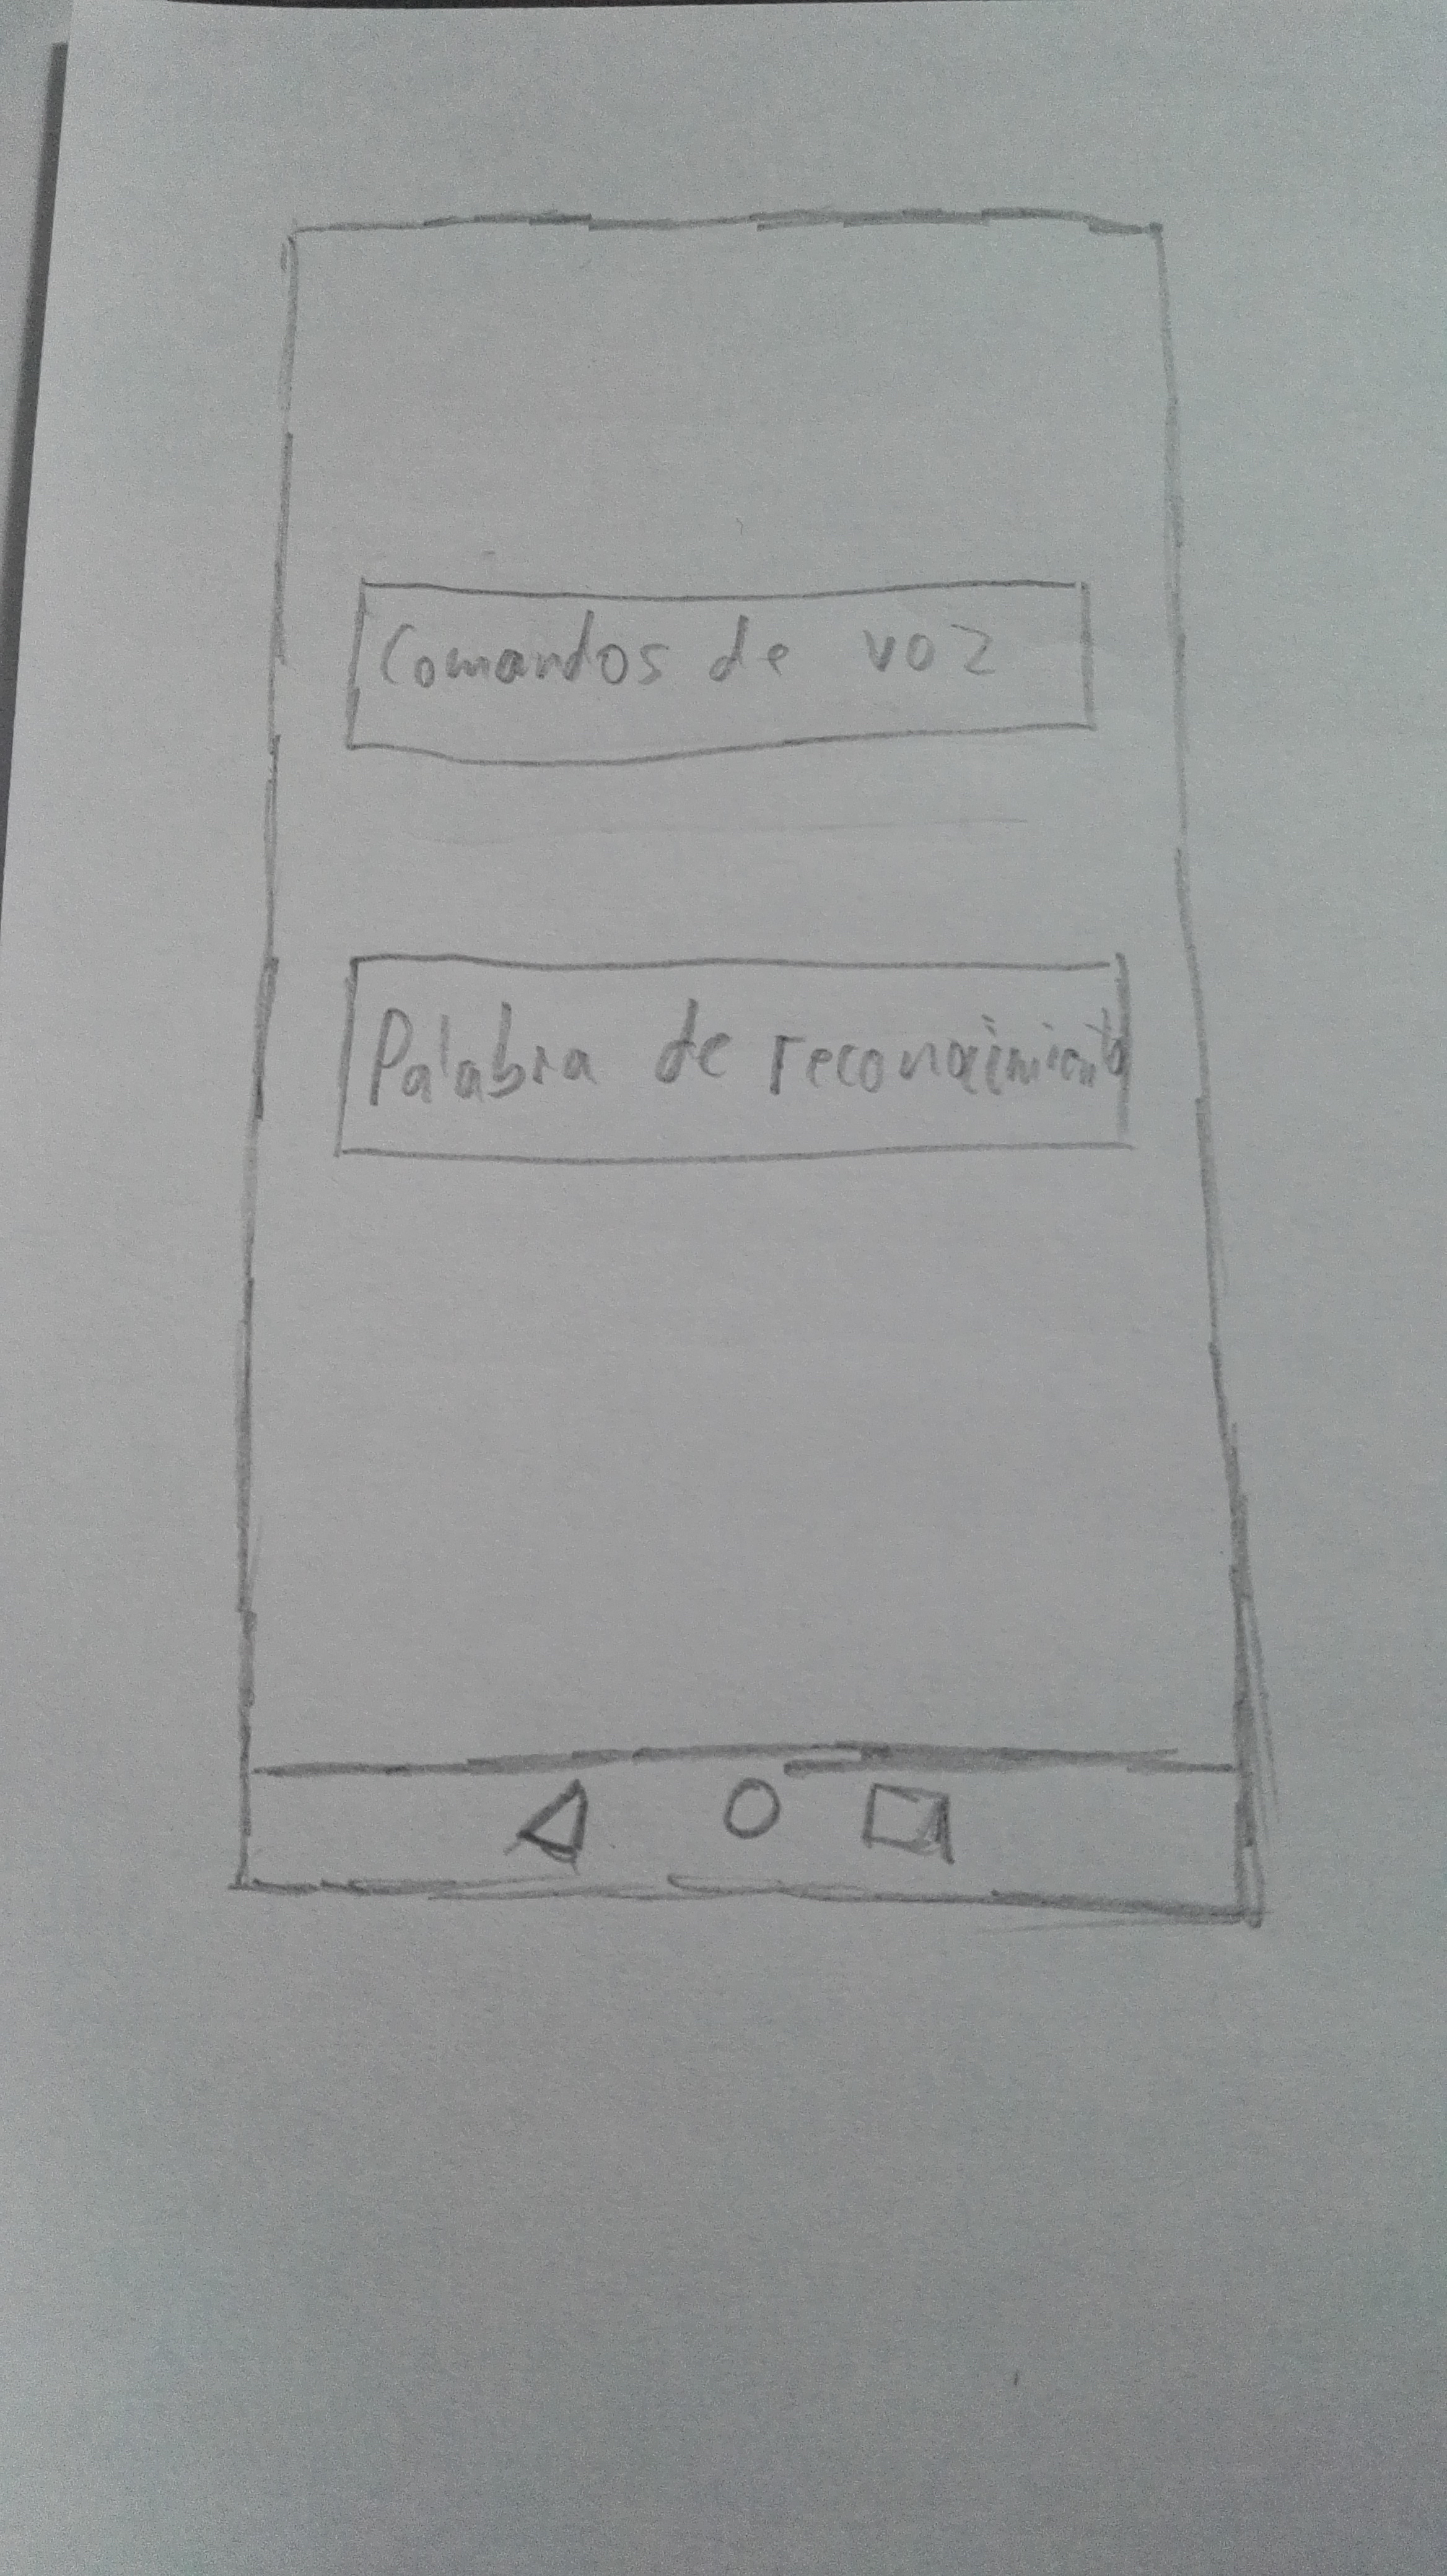 Comandos de voz
Palabra de reconocimiento